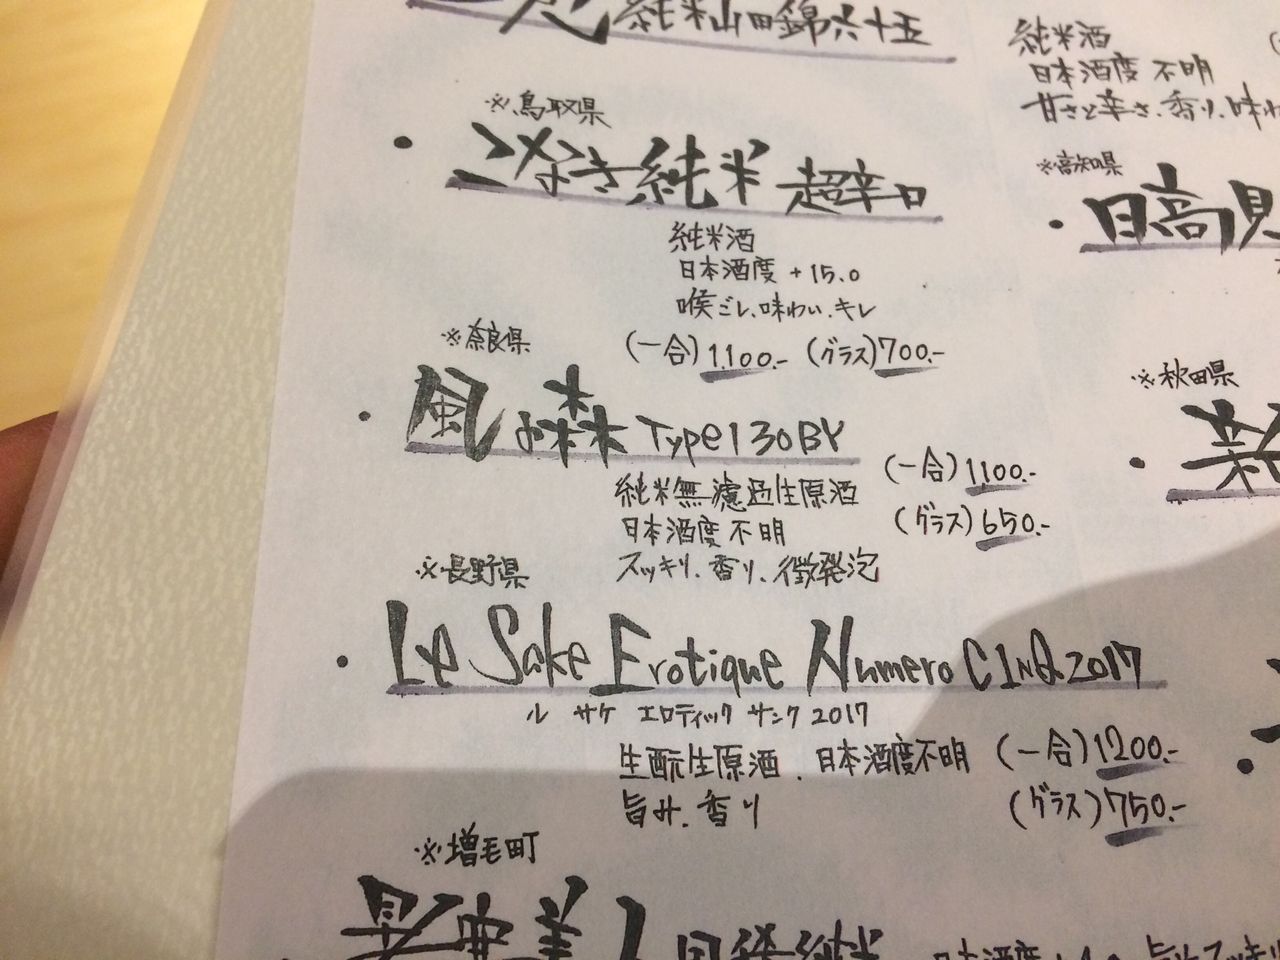 純米山田錦六十五
※鳥取県
・こなき純米 超辛口
純米酒
日本酒度 +15.0
喉ごし、味わい、キレ
(一合)1,100.- (グラス)700.-
※奈良県
・風の森 Type1 30BY
(一合)1,100.-
純米無濾過生原酒
(グラス)650.-
日本酒度 不明
スッキリ、香り、微発泡
※長野県
・Le Sake Erotique Numero CINQ 2017
ル サケ エロティック サンク 2017
生酛生原酒、日本酒度不明 (一合)1200.-
旨み、香り (グラス)750.-
※増毛町
純米酒
日本酒度 不明
甘さと辛さ、香り、味わ
※高知県
・日高見
※秋田県